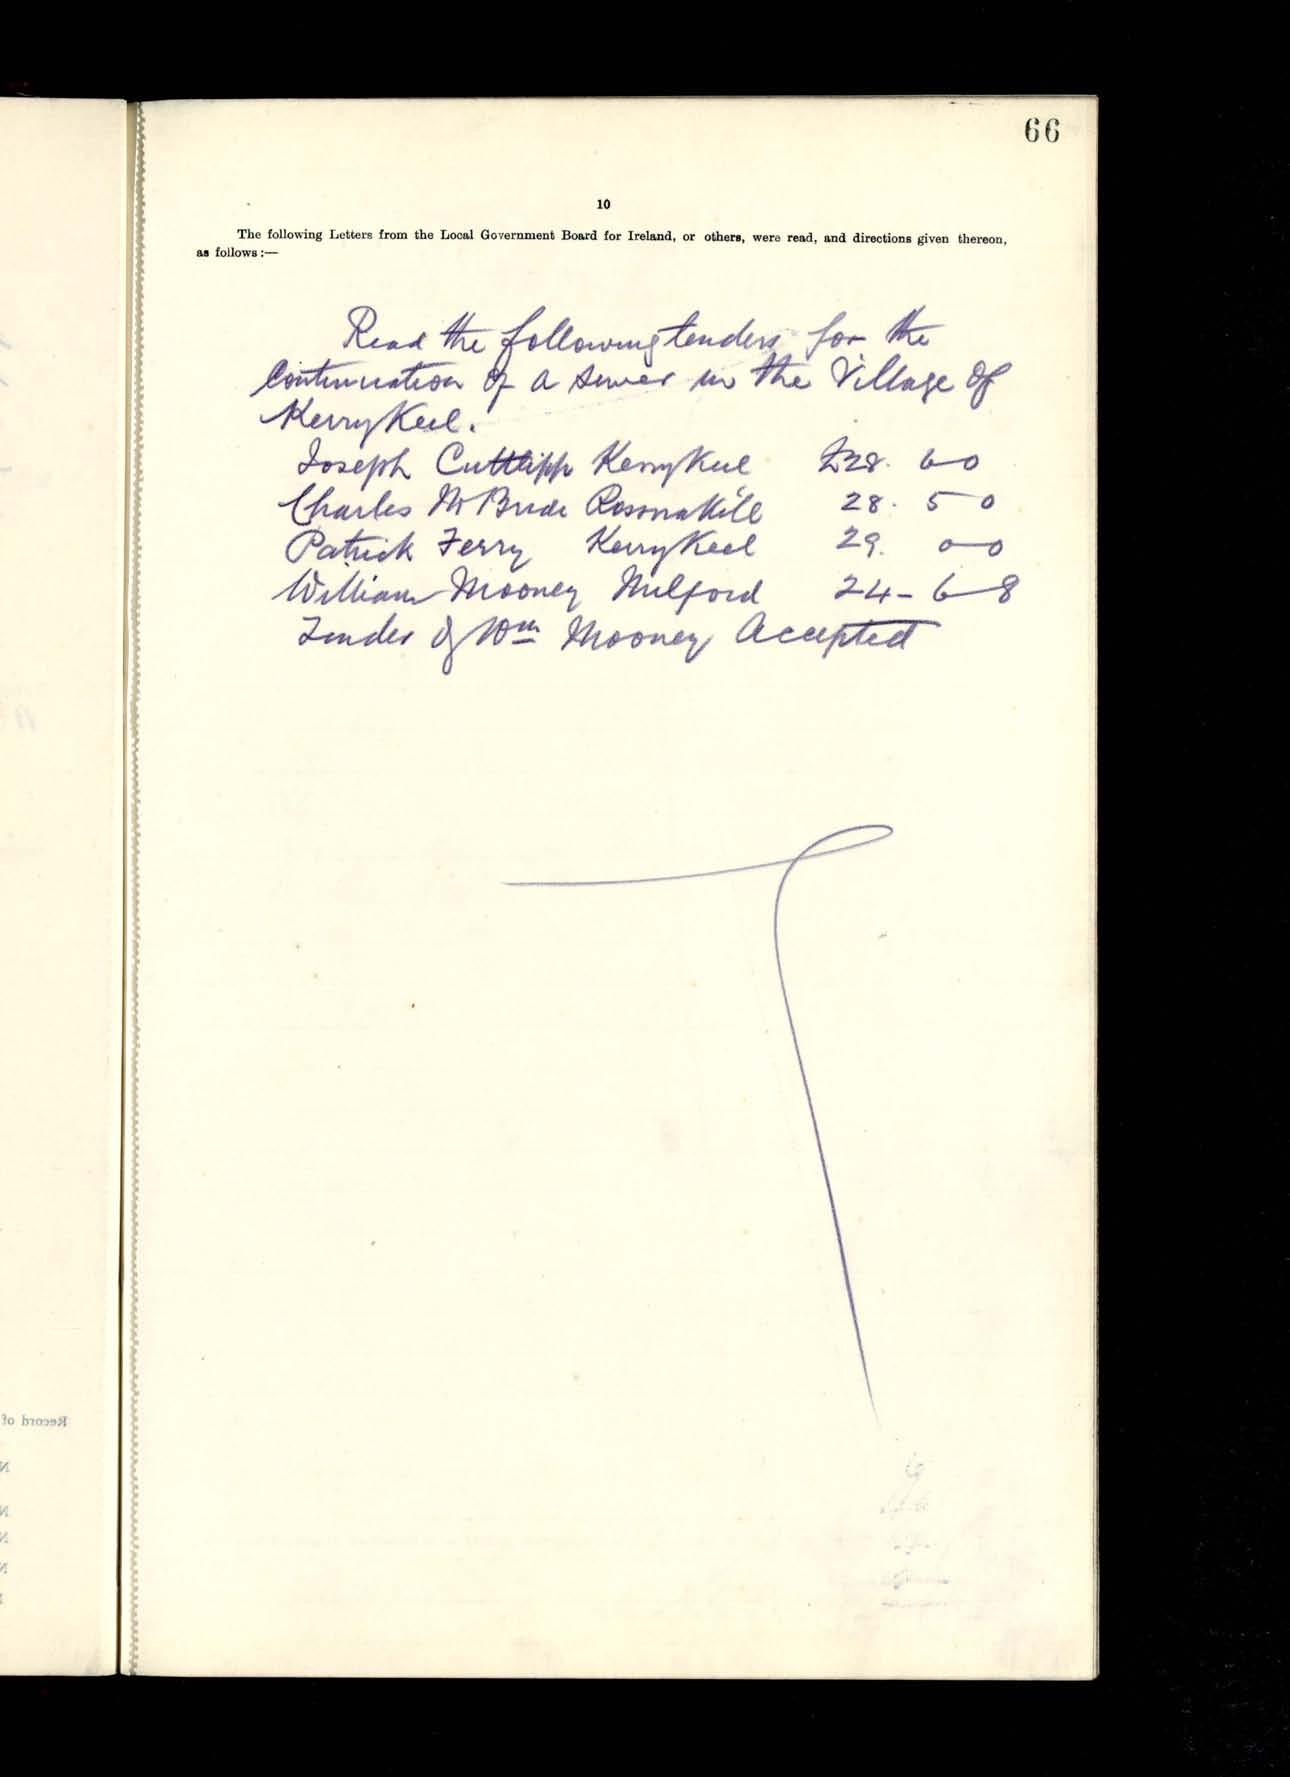 66
10
The following Letters from the Local Government Board for Ireland, or others, were read, and directions given thereon,
as follows :—
Read the following tenders for the
Continuation of a sewer in the Village of
KerryKeel.
Joseph Cuttlipp KerryKeel £28. 6 0
Charles McBride Rosnakill 28. 5 0
Patrick Ferry KerryKeel 29. 0 0
William Mooney Milford 24 - 6 - 8
Tender of Wm Mooney Accepted
Record of